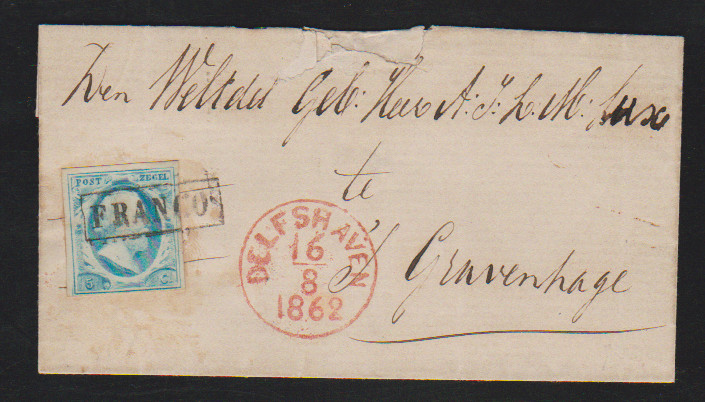 Den Weldd Geb: Heer A: J: L. M: Luxe
te
's Gravenhage
POST ZEGEL
FRANCO
5 C.
DELFSHAVEN
16
8
1862